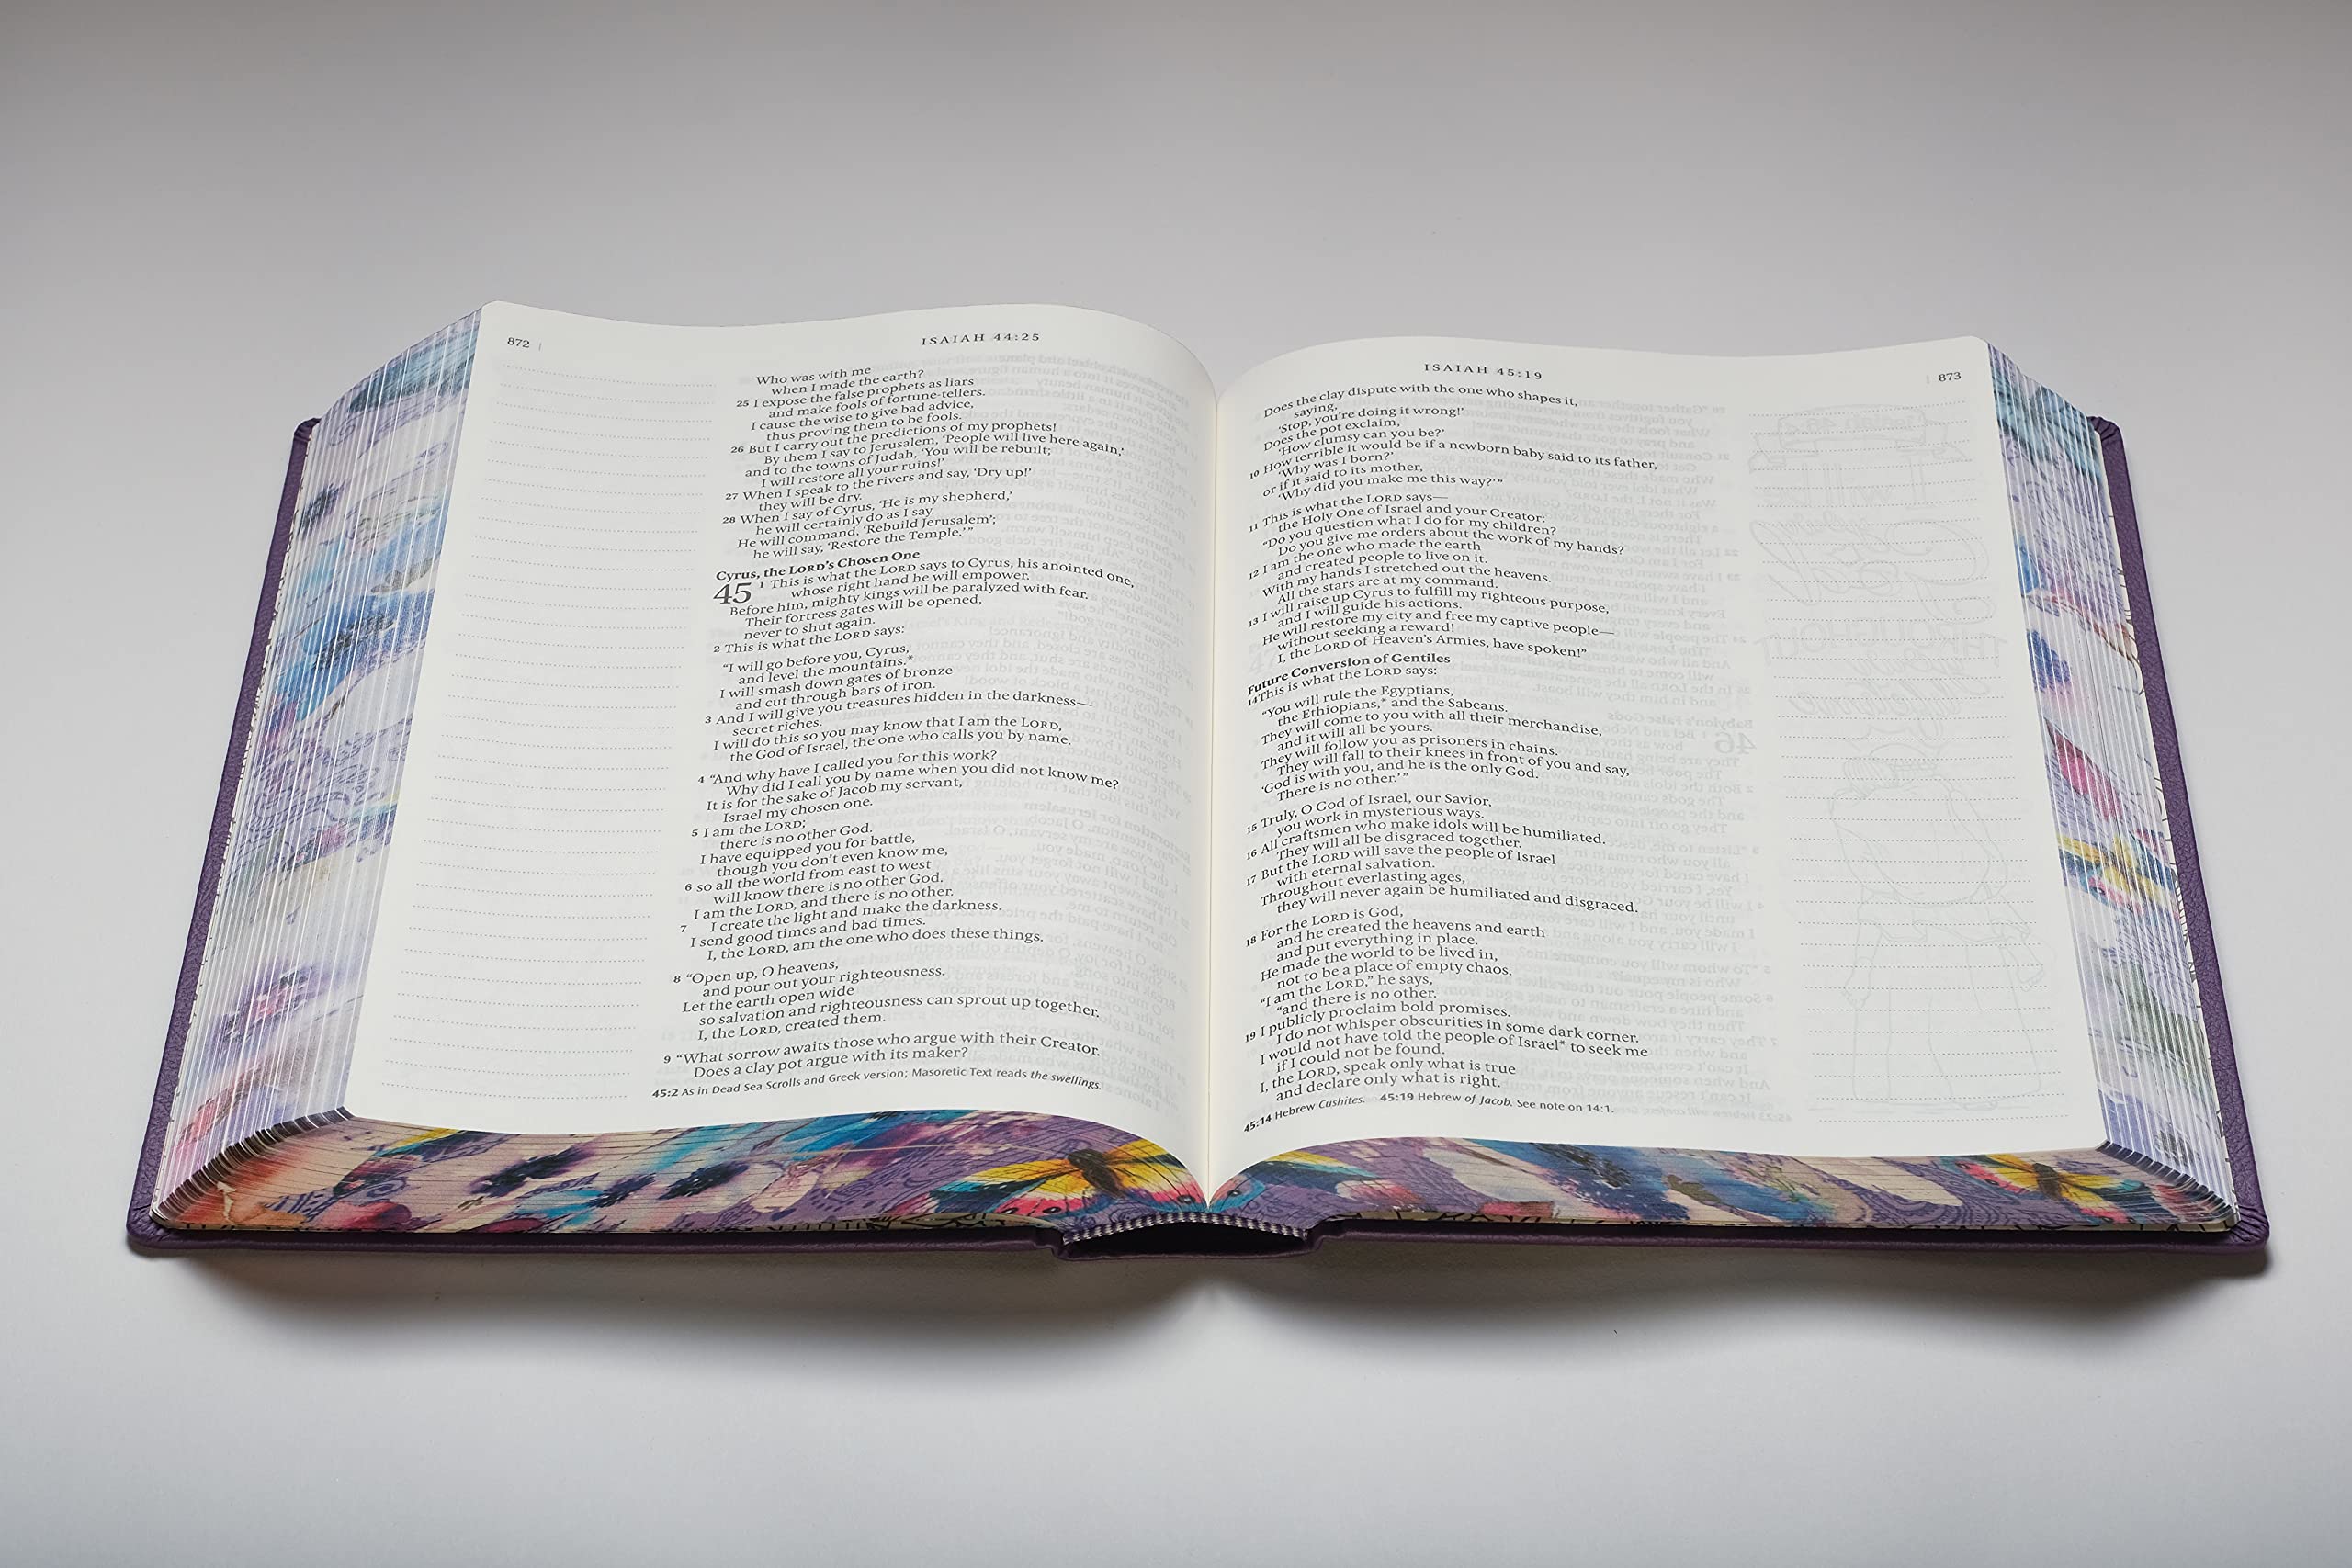 872
ISAIAH 44:25
Who was with me
when I made the earth?
25 I expose the false prophets as liars
and make fools of fortune-tellers.
I cause the wise to give bad advice,
thus proving them to be fools.
26 But I carry out the predictions of my prophets!
By them I say to Jerusalem, ‘People will live here again,’
and to the towns of Judah, ‘You will be rebuilt;
I will restore all your ruins!’
27 When I speak to the rivers and say, ‘Dry up!’
they will be dry.
28 When I say of Cyrus, ‘He is my shepherd,’
he will certainly do as I say.
He will command, ‘Rebuild Jerusalem’;
he will say, ‘Restore the Temple.’”
Cyrus, the LORD’s Chosen One
45 1 This is what the LORD says to Cyrus, his anointed one,
whose right hand he will empower.
Before him, mighty kings will be paralyzed with fear.
Their fortress gates will be opened,
never to shut again.
2 This is what the LORD says:
“I will go before you, Cyrus,
and level the mountains.*
I will smash down gates of bronze
and cut through bars of iron.
3 And I will give you treasures hidden in the darkness—
secret riches.
I will do this so you may know that I am the LORD,
the God of Israel, the one who calls you by name.
4 “And why have I called you for this work?
Why did I call you by name when you did not know me?
It is for the sake of Jacob my servant,
Israel my chosen one.
5 I am the LORD;
there is no other God.
I have equipped you for battle,
though you don’t even know me,
6 so all the world from east to west
will know there is no other God.
I am the LORD, and there is no other.
7 I create the light and make the darkness.
I send good times and bad times.
I, the LORD, am the one who does these things.
8 “Open up, O heavens,
and pour out your righteousness.
Let the earth open wide
so salvation and righteousness can sprout up together.
I, the LORD, created them.
9 “What sorrow awaits those who argue with their Creator.
Does a clay pot argue with its maker?
45:2 As in Dead Sea Scrolls and Greek version; Masoretic Text reads the swellings.
ISAIAH 45:19
873
Does the clay dispute with the one who shapes it,
saying,
‘Stop, you’re doing it wrong!’
Does the pot exclaim,
‘How clumsy can you be?’
10 How terrible it would be if a newborn baby said to its father,
‘Why was I born?’
or if it said to its mother,
‘Why did you make me this way?’”
11 This is what the LORD says—
the Holy One of Israel and your Creator:
“Do you question what I do for my children?
Do you give me orders about the work of my hands?
12 I am the one who made the earth
and created people to live on it.
With my hands I stretched out the heavens.
All the stars are at my command.
13 I will raise up Cyrus to fulfill my righteous purpose,
and I will guide his actions.
He will restore my city and free my captive people—
without seeking a reward!
I, the LORD of Heaven’s Armies, have spoken!”
Future Conversion of Gentiles
14 This is what the LORD says:
“You will rule the Egyptians,
the Ethiopians,* and the Sabeans.
They will come to you with all their merchandise,
and it will all be yours.
They will follow you as prisoners in chains.
They will fall to their knees in front of you and say,
‘God is with you, and he is the only God.
There is no other.’”
15 Truly, O God of Israel, our Savior,
you work in mysterious ways.
16 All craftsmen who make idols will be humiliated.
They will all be disgraced together.
17 But the LORD will save the people of Israel
with eternal salvation.
Throughout everlasting ages,
they will never again be humiliated and disgraced.
18 For the LORD is God,
and he created the heavens and earth
and put everything in place.
He made the world to be lived in,
not to be a place of empty chaos.
“I am the LORD,” he says,
“and there is no other.
19 I publicly proclaim bold promises.
I do not whisper obscurities in some dark corner.
I would not have told the people of Israel* to seek me
if I could not be found.
I, the LORD, speak only what is true
and declare only what is right.
45:14 Hebrew Cushites. 45:19 Hebrew of Jacob. See note on 14:1.